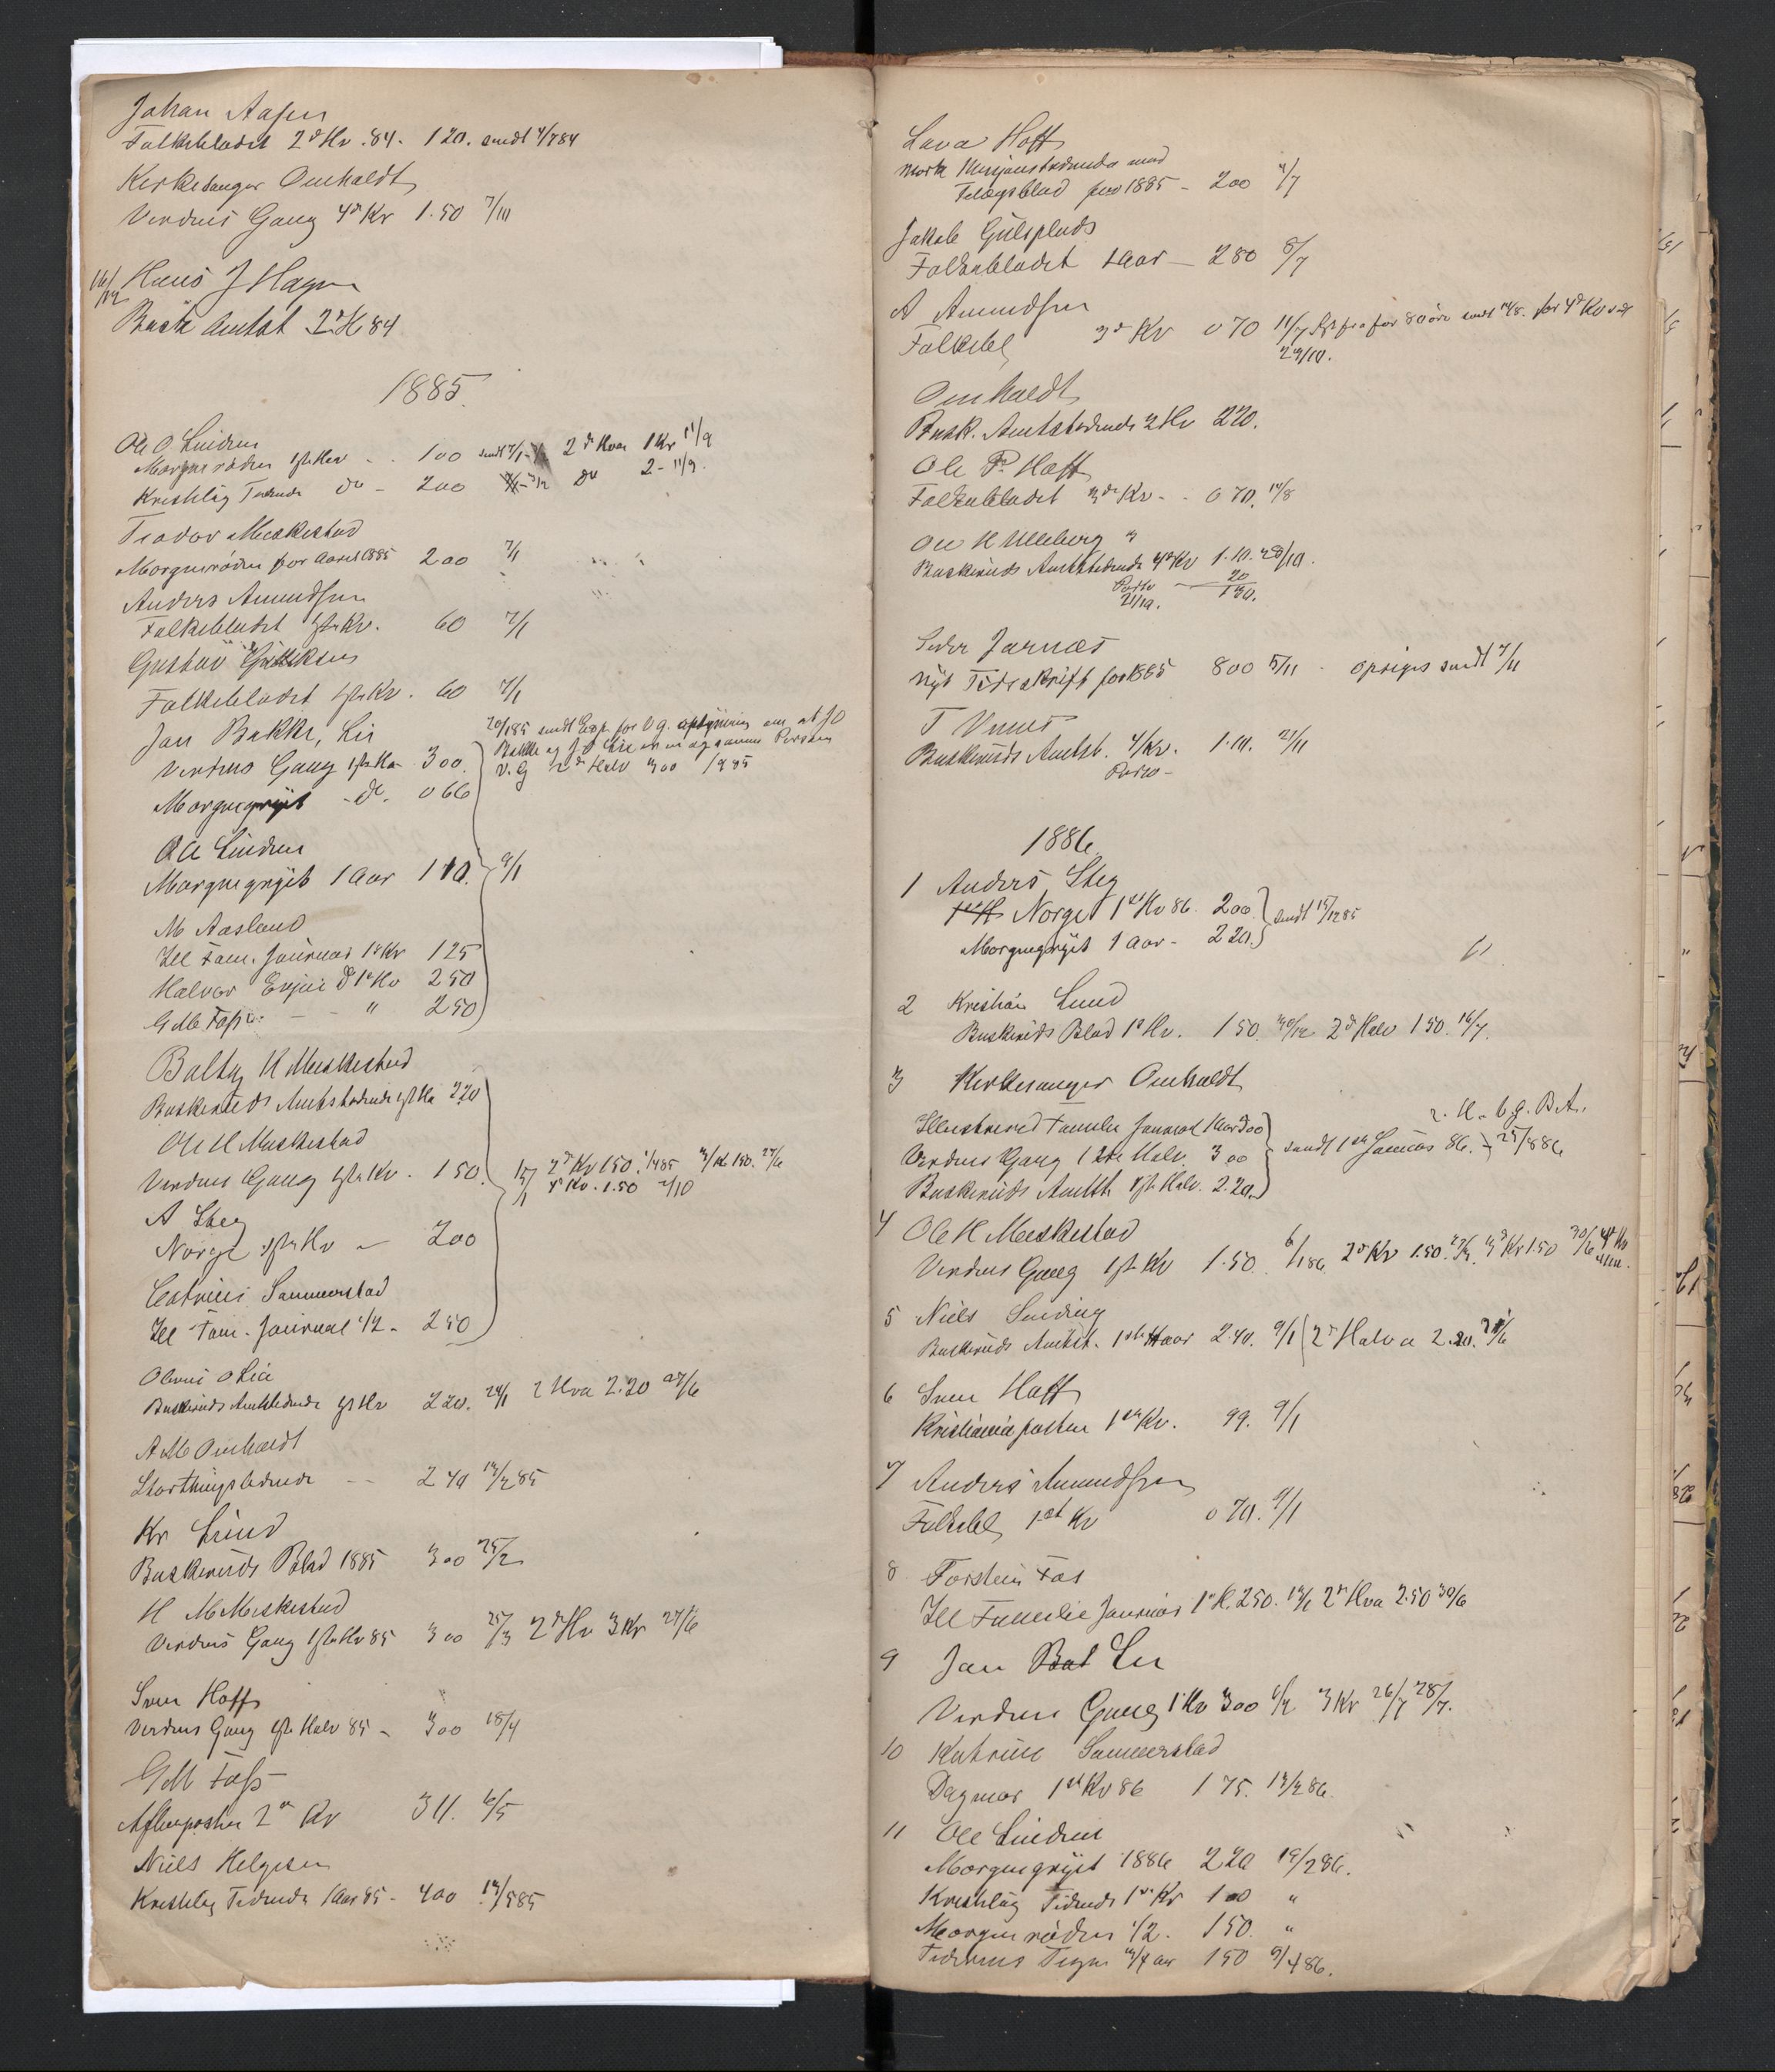 Johan Aasen
Folkebladet 2d Hv. 84. 120. sendt 4/7 84
Kirkesanger Omholdt
Verdens Gang 4d Kv 1.50 7/10
16/12 Hans J Hagen
Busk Amtst 2d H 84
1885.
Ole O. Linden
Morgenrøden 1ste Hv 100 sendt 2d Kva 1 Kr 11/9
Kristelig Tidende do - 200 do 2 - 11/9.
Teodor Meskestad
Morgenrøden for Aaret 1885 200 7/1
Anders Amundsen
Folkebladet 1ste Kv. 60 7/1
Gustav Eriksen
Folkebladet 1ste Kv. 60 7/1
Jan Bakke, Lie
20/1 85 sendt Exp. for V.g. oplysning om at J O
Bakke og J O Lie er en og samme Person
Verdens Gang 1ste Ha 300.
V.G 2d Halv 300
Morgengryet - do. 066
Ole Linden
Morgengryet 1 Aar 110. 9/1
M Aasland
Ill Fam. Journal 1st Kv 125
Halvor Evju do 1st Hv 250
G M Foss - - " 250
Baltz. H Meskestad
Buskeruds Amtstidende 1ste Ha 220
Ole H Meskestad
Verdens Gang 1ste Kv. 150.
2d Kv 150. 1/4 85 3/Kv 150. 27/6
4 Kv. 1.50 2/10
A Steg
Norge 1ste Hv - 200
Catrine Sammerstad
Ill Fam. Journal 1/2 - 250
Olaus o Lia
Buskeruds Amtstidende 1st Hv 220. 24/1 2 Hva 2.20 27/6
A M Omholdt
Storthingstidende - - 240 13/2 85
Kr Lund
Buskeruds Blad 1885 300 25/2
H M Meskestad
Verdens Gang 1ste Hv 85 300 25/3 2d Hv 3 Kr 27/6
Sven Hoff
Verdens Gang 1ste Halv 85 - 300 18/4
G M Foss
Aftenposten 2d Kv 311. 6/5
Niels Helgesen
Kristelig Tidende 1 Aar 85 - 400 13/5 85
Lava Hoff
Norsk Misjonstidende med
Tillægsblad for 1885 - 200 4/7
Jakob Gulsplads
Folkebladet 1 Aar - 280 8/7
A Amundsen
Folkebl 3d Kv 070 11/7 for 80 øre sendt 14/8. for 4d Kv
29/10.
Omholdt
Busk. Amtstidende 2 Hv 220.
Ole P. Hoff
Folkebladet 3de Kv - - 070. 14/8
Ole H Ulleberg
Buskeruds Amtstidende 4de Kv 1.10. 20/10.
Porto 20
21/10. 130.
Peder Jarnæs
Nyt Tidsskrift for 1885 800 5/11 - opsiges sendt 7/11
T Unnes
Buskeruds Amtst. 4/Kv. 1.10. 21/11
Porto -
1886.
1 Anders Steg
Norge 1st Hv 86. 200. sendt 15/12 85
Morgengryet 1 Aar - 220.
2 Kristian Lund
Buskeruds Blad 1st Hv. 150. 30/12 2d Halv 150. 16/7.
3 Kirkesanger Omholdt
2. H. V.g. B.A.
Illustreret Familie Journal
Verdens Gang 1ste Halv. 300 sendt 1ste Januar 86. 25/8 86
Buskeruds Amtst. 1ste Halv. 2.20.
4 Ole H Meskestad
Verdens Gang 1ste Kv 1.50. 6/1 86 2d Kv 1.50. 3d Kv 1.50 30/6 4de Kv
5 Niels Smiding
Buskeruds Amtst. 1ste Haar 2.40. 9/1 2d Halv a 2.20.
6 Sven Hoff
Kristianiaposten 1ste Kv. 99. 9/1
7 Anders Amundsen
Folkebl 1st Kv 070. 9/1
8 Torstein Fos
Ill Familie Journal 1st H. 250. 13/1 2d Hva 2.50 30/6
9 Jan Bak Lie
Verdens Gang 1 Hv 300 3 Kr 26/7 28/7.
10 Katrine Sammerstad
Dagmar 1st Kv 86 175. 13/2 86.
11 Ole Linden
Morgengryet 1886 220 19/2 86.
Kristelig Tidende 1ste Kv 100 "
Morgenrøden 1/2. 150. "
Tidernes Tegn 3/4 aar 150 9/4 86.